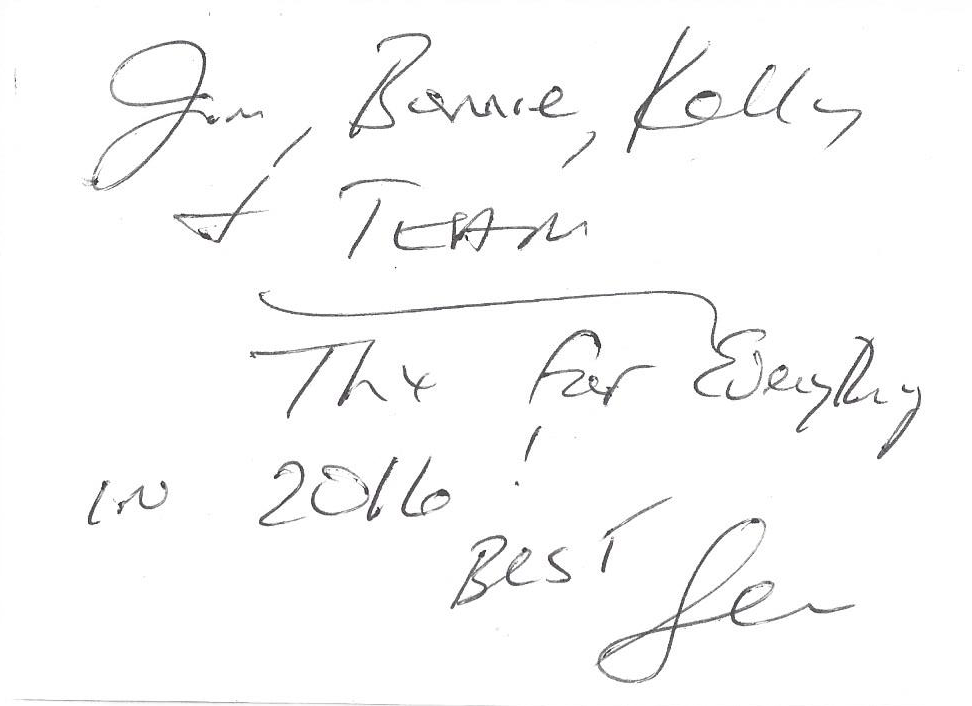 Jim, Bonnie, Kelly
+ TEAM
Thx for Everything
in 2016!
BEST